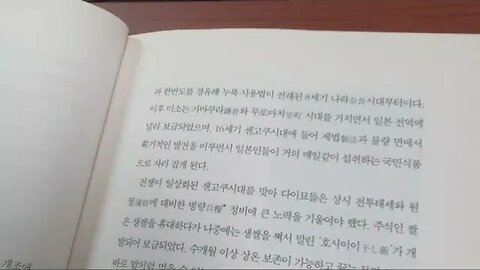 과 한반도를 경유해 누룩 사용법이 전래된 8세기 나라奈良시대부터이다.
이후 미소는 가마쿠라鎌倉와 무로마치室町 시대를 거치면서 일본 전역에
널리 보급되었으며, 16세기 센고쿠시대에 들어 제법製法과 물량 면에서
획기적인 발전을 이루면서 일본인들이 거의 매일같이 섭취하는 국민식품
으로 자리 잡게 된다.
전쟁이 일상화된 센고쿠시대를 맞아 다이묘들은 상시 전투태세와 원
정遠征에 대비한 병량兵糧* 정비에 큰 노력을 기울여야 했다. 주식인 쌀
은 생쌀을 휴대하다가 나중에는 생쌀을 쪄서 말린 '호시이이干し飯'가 개
발되어 보급되었다. 수개월 이상 상온 보존이 가능하고 끓는
바로 밥처럼 먹을 수